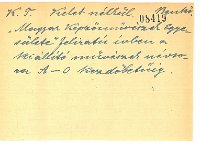 K. T. Kelet nélkül.
08419
"Magyar Képzőművészek Egye-
sülete" feliratú ívben a
kiállító művészek névso-
ra A–O kezdőbetűig.